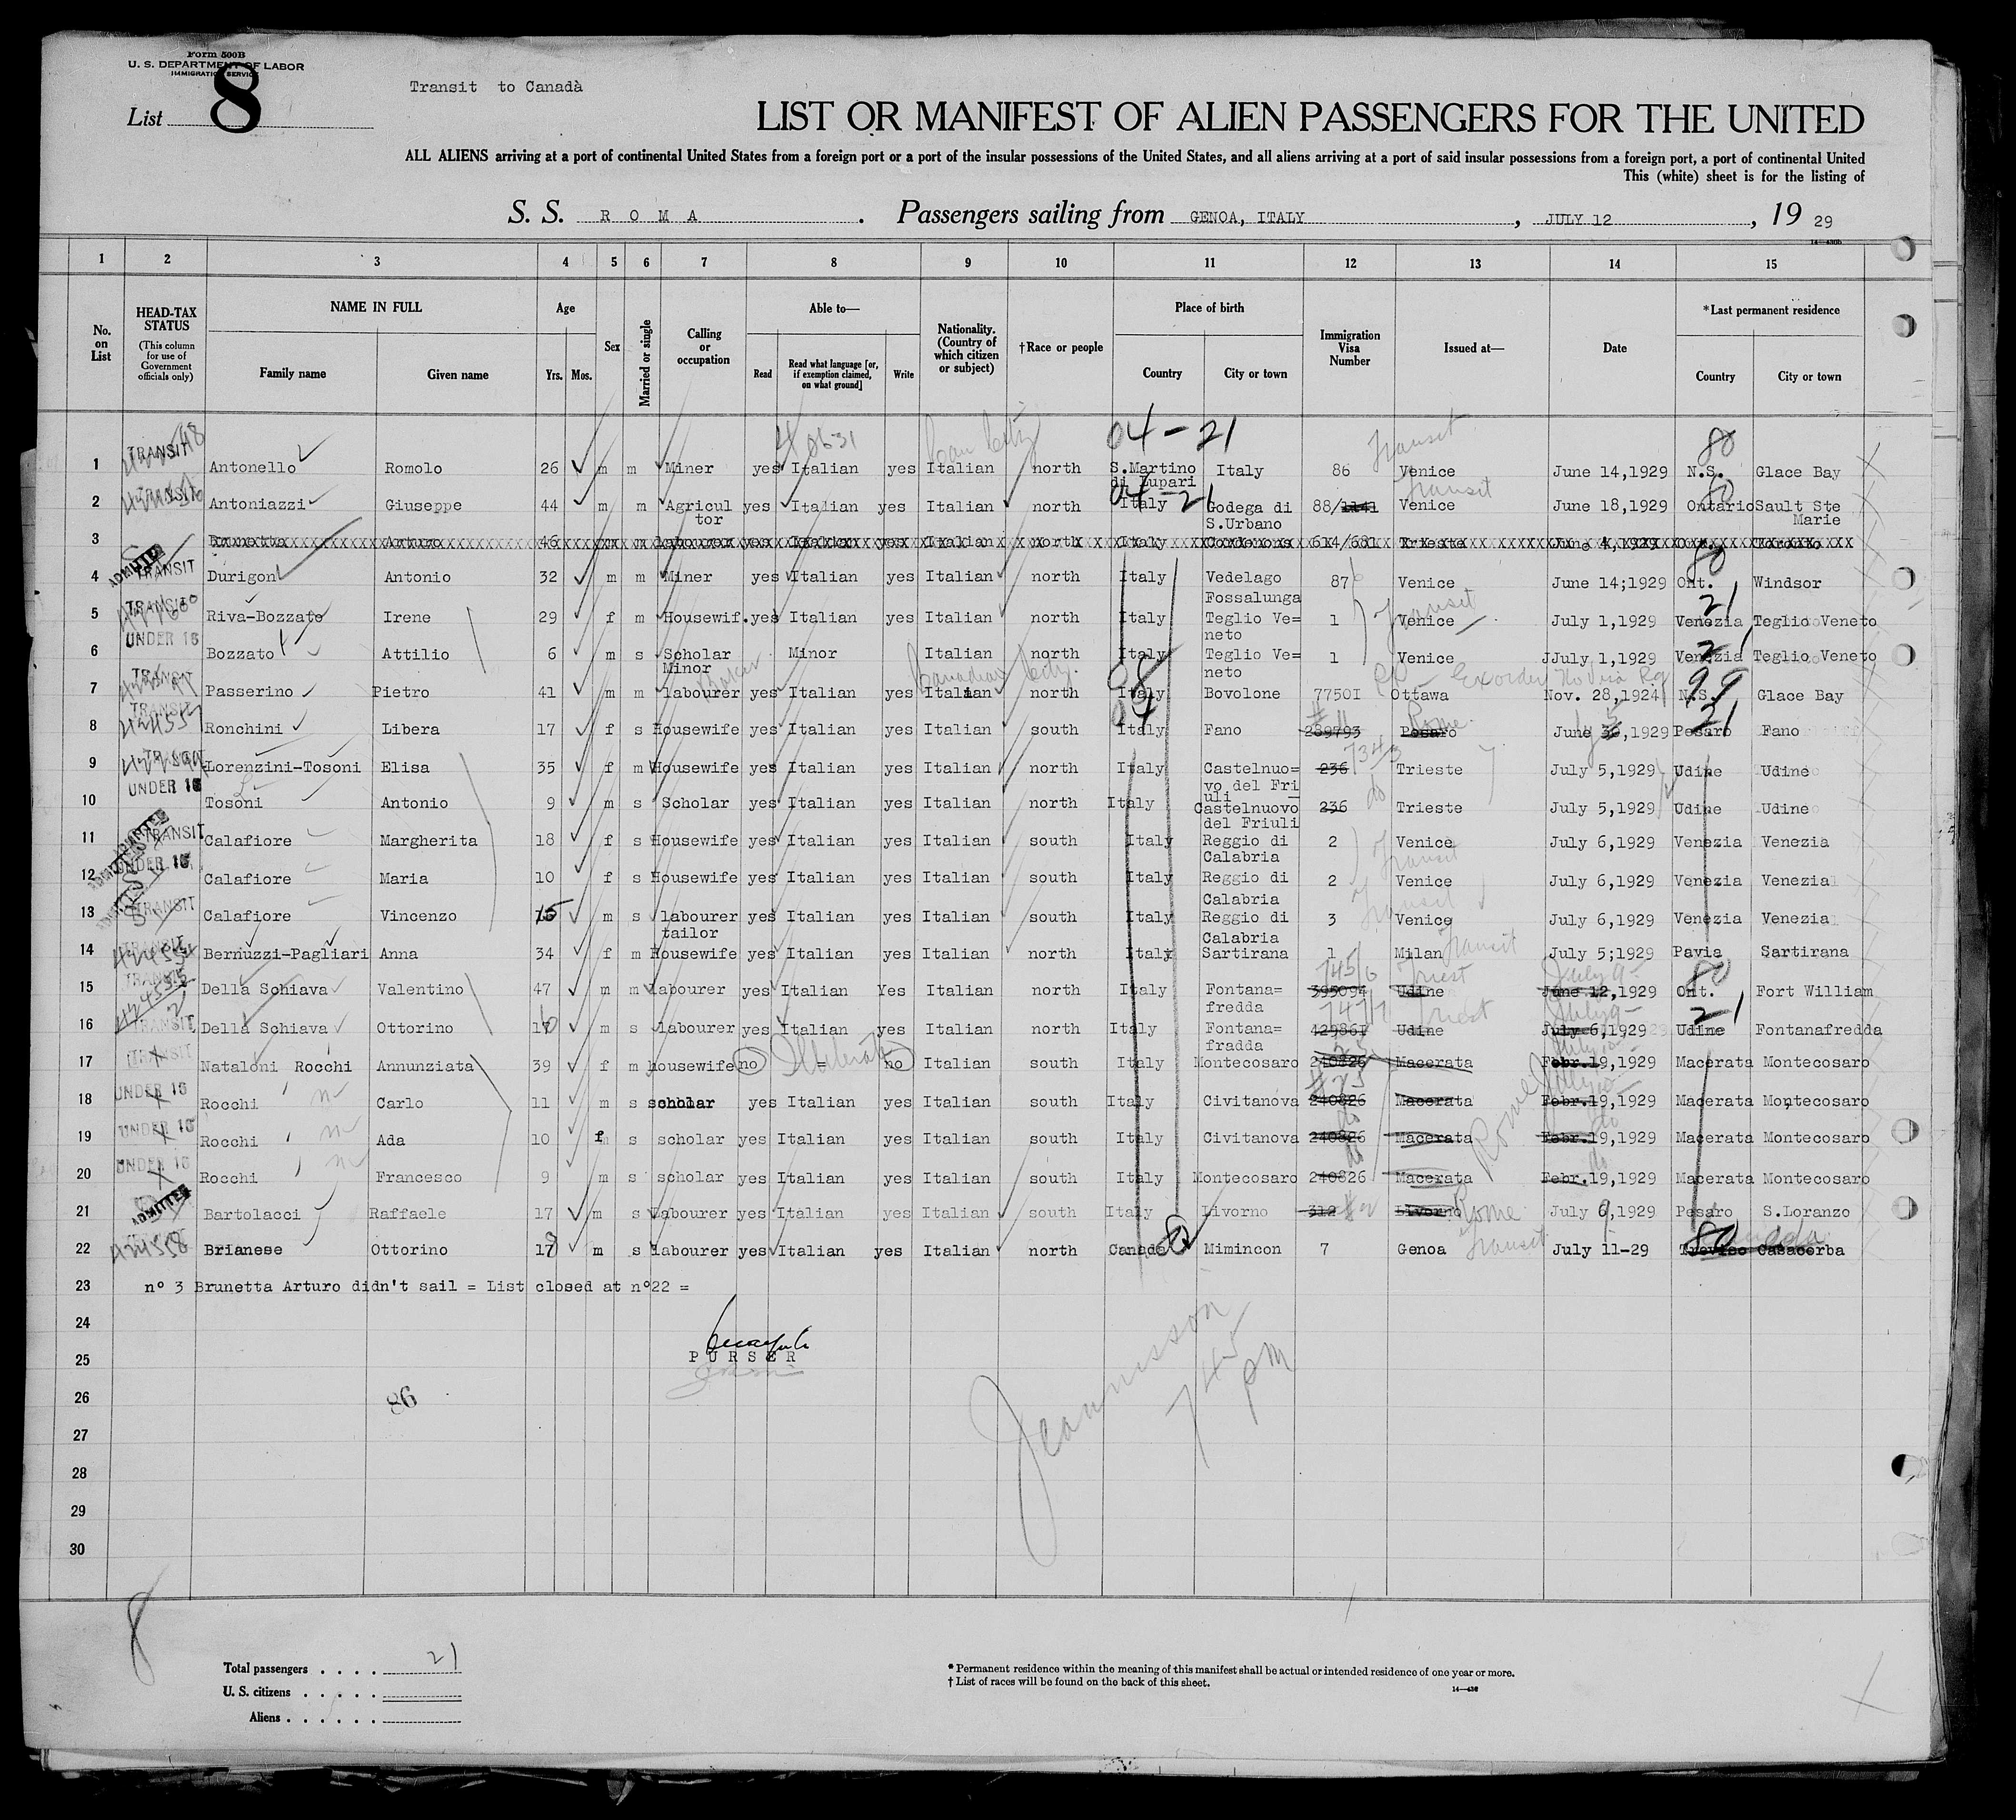 Form 500B
U. S. DEPARTMENT OF LABOR
IMMIGRATION SERVICE
Transit to Canadà
List 8
LIST OR MANIFEST OF ALIEN PASSENGERS FOR THE UNITED
ALL ALIENS arriving at a port of continental United States from a foreign port or a port of the insular possessions of the United States, and all aliens arriving at a port of said insular possessions from a foreign port, a port of continental United
This (white) sheet is for the listing of
S. S. R O M A . Passengers sailing from GENOA, ITALY , JULY 12 , 19 29
1 2 3 4 5 6 7 8 9 10 11 12 13 14 15
No. on List
HEAD-TAX STATUS (This column for use of Government officials only)
NAME IN FULL Family name Given name
Age Yrs. Mos.
Sex
Married or single
Calling or occupation
Able to— Read Read what language [or, if exemption claimed, on what ground] Write
Nationality. (Country of which citizen or subject)
†Race or people
Place of birth Country City or town
Immigration Visa Number
Issued at—
Date
*Last permanent residence Country City or town
04-21 Transit 80
1 TRANSIT Antonello Romolo 26 m m Miner yes Italian yes Italian north S.Martino di Lupari Italy 86 Venice June 14,1929 N.S. Glace Bay
04-21 Transit 80
2 Antoniazzi Giuseppe 44 m m Agricul tor yes Italian yes Italian north Italy Godega di S.Urbano 88/ Venice June 18,1929 Ontario Sault Ste Marie
3 Brunetta Arturo 46 m m labourer yes Italian yes Italian north Italy Cordenons 614/681 Trieste June 4,1929 Ont. Toronto
4 ADMITTED TRANSIT Durigon Antonio 32 m m Miner yes Italian yes Italian north Italy Vedelago Fossalunga 87 Venice June 14;1929 Ont. Windsor 80
5 TRANSIT Riva-Bozzato Irene 29 f m Housewif. yes Italian yes Italian north Italy Teglio Ve= neto 1 Venice Transit July 1,1929 Venezia Teglio Veneto 21
6 UNDER 16 Bozzato Attilio 6 m s Scholar Minor Minor Italian north Italy Teglio Ve= neto 1 Venice JJuly 1,1929 Venezia Teglio Veneto 21
7 TRANSIT Passerino Pietro 41 m m labourer yes Italian yes Italian north Italy Bovolone 7750I Ottawa Nov. 28,1924 N.S. Glace Bay 99
8 TRANSIT Ronchini Libera 17 f s Housewife yes Italian yes Italian south Italy Fano 289793 Pesaro Rome June 30,1929 Pesaro Fano 21
9 TRANSIT Lorenzini-Tosoni Elisa 35 f m Housewife yes Italian yes Italian north Italy Castelnuo= vo del Fri uli 236 Trieste July 5,1929 Udine Udine
10 UNDER 16 Tosoni Antonio 9 m s Scholar yes Italian yes Italian north Italy Castelnuovo del Friuli 236 do Trieste July 5,1929 Udine Udine
11 ADMITTED TRANSIT Calafiore Margherita 18 f s Housewife yes Italian yes Italian south Italy Reggio di Calabria 2 Venice July 6,1929 Venezia Venezia
12 UNDER 16 Calafiore Maria 10 f s Housewife yes Italian yes Italian south Italy Reggio di Calabria 2 Venice Transit July 6,1929 Venezia Venezia
13 TRANSIT Calafiore Vincenzo 15 m s labourer tailor yes Italian yes Italian south Italy Reggio di Calabria 3 Venice Transit July 6,1929 Venezia Venezia
14 TRANSIT Bernuzzi-Pagliari Anna 34 f m Housewife yes Italian yes Italian north Italy Sartirana 1 Milan Transit July 5;1929 Pavia Sartirana
15 TRANSIT Della Schiava Valentino 47 m m labourer yes Italian Yes Italian north Italy Fontana= fredda 395094 Udine Triest June 12,1929 July 9 Ont. Fort William 80
16 TRANSIT Della Schiava Ottorino 16 m s labourer yes Italian yes Italian north Italy Fontana= fradda 42986I Udine Triest July 6,1929 July 9 Udine Fontanafredda 21
17 TRANSIT Nataloni Rocchi Annunziata 39 f m housewife no = no Italian south Italy Montecosaro 240826 Macerata Febr.19,1929 Macerata Montecosaro
18 UNDER 16 Rocchi Carlo 11 m s scholar yes Italian yes Italian south Italy Civitanova 240826 Macerata Febr.19,1929 Macerata Montecosaro
19 UNDER 16 Rocchi Ada 10 f s scholar yes Italian yes Italian south Italy Civitanova 240826 Macerata Rome Febr.19,1929 Macerata Montecosaro
20 UNDER 16 Rocchi Francesco 9 m s scholar yes Italian yes Italian south Italy Montecosaro 240826 Macerata Febr.19,1929 Macerata Montecosaro
21 ADMITTED Bartolacci Raffaele 17 m s labourer yes Italian yes Italian south Italy Livorno 312 Livorno Rome July 6,1929 Pesaro S.Loranzo
22 Brianese Ottorino 18 m s labourer yes Italian yes Italian north Canada Mimincon 7 Genoa Transit July 11-29 Treviso Casacorba 80 Canada
23 n° 3 Brunetta Arturo didn't sail = List closed at n°22 =
24
25 PURSER
26 86
27
28
29
30
745 pm
8
Total passengers . . . . 21
U. S. citizens . . . . .
Aliens . . . . . .
* Permanent residence within the meaning of this manifest shall be actual or intended residence of one year or more.
† List of races will be found on the back of this sheet.